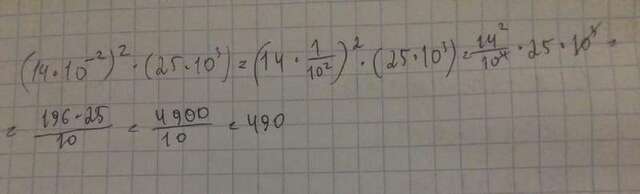 (14·10⁻²)² · (25·10³) = (14 · 1/10²)² · (25·10³) = 14²/10⁴ · 25 · 10³ =
= 196·25/10 = 4900/10 = 490